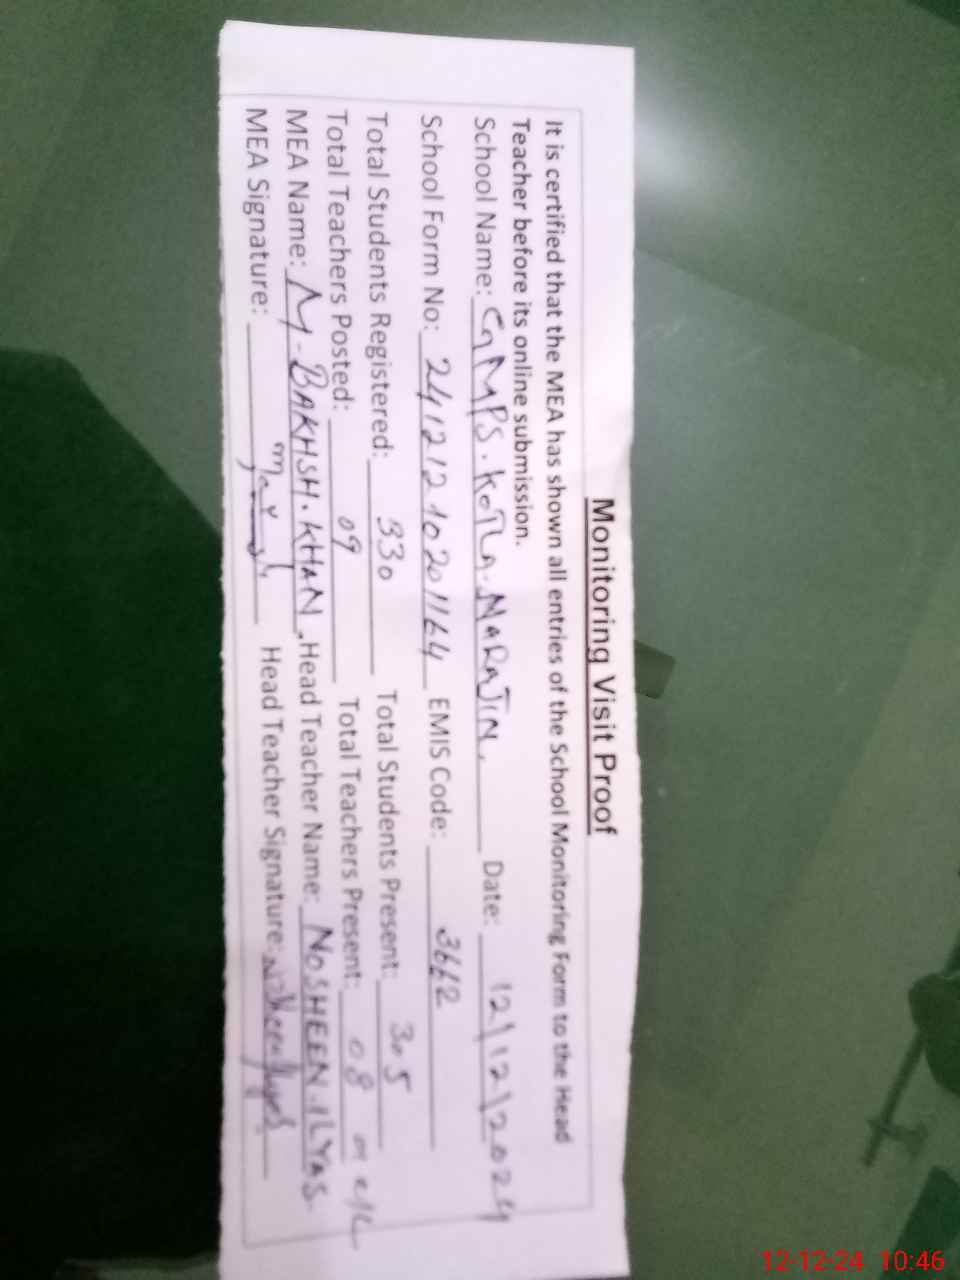 Monitoring Visit Proof
It is certified that the MEA has shown all entries of the School Monitoring Form to the Head
Teacher before its online submission.
School Name: GMPS. KOTLA. MARAJIN. Date: 12\12\2024
School Form No: 24121210201164 EMIS Code:
Total Students Registered: 330 Total Students Present: 305
Total Teachers Posted: 09 Total Teachers Present: 08
MEA Name: M. BAKHSH. KHAN Head Teacher Name: NOSHEEN. ILYAS.
MEA Signature: Head Teacher Signature:
12-12-24 10:46